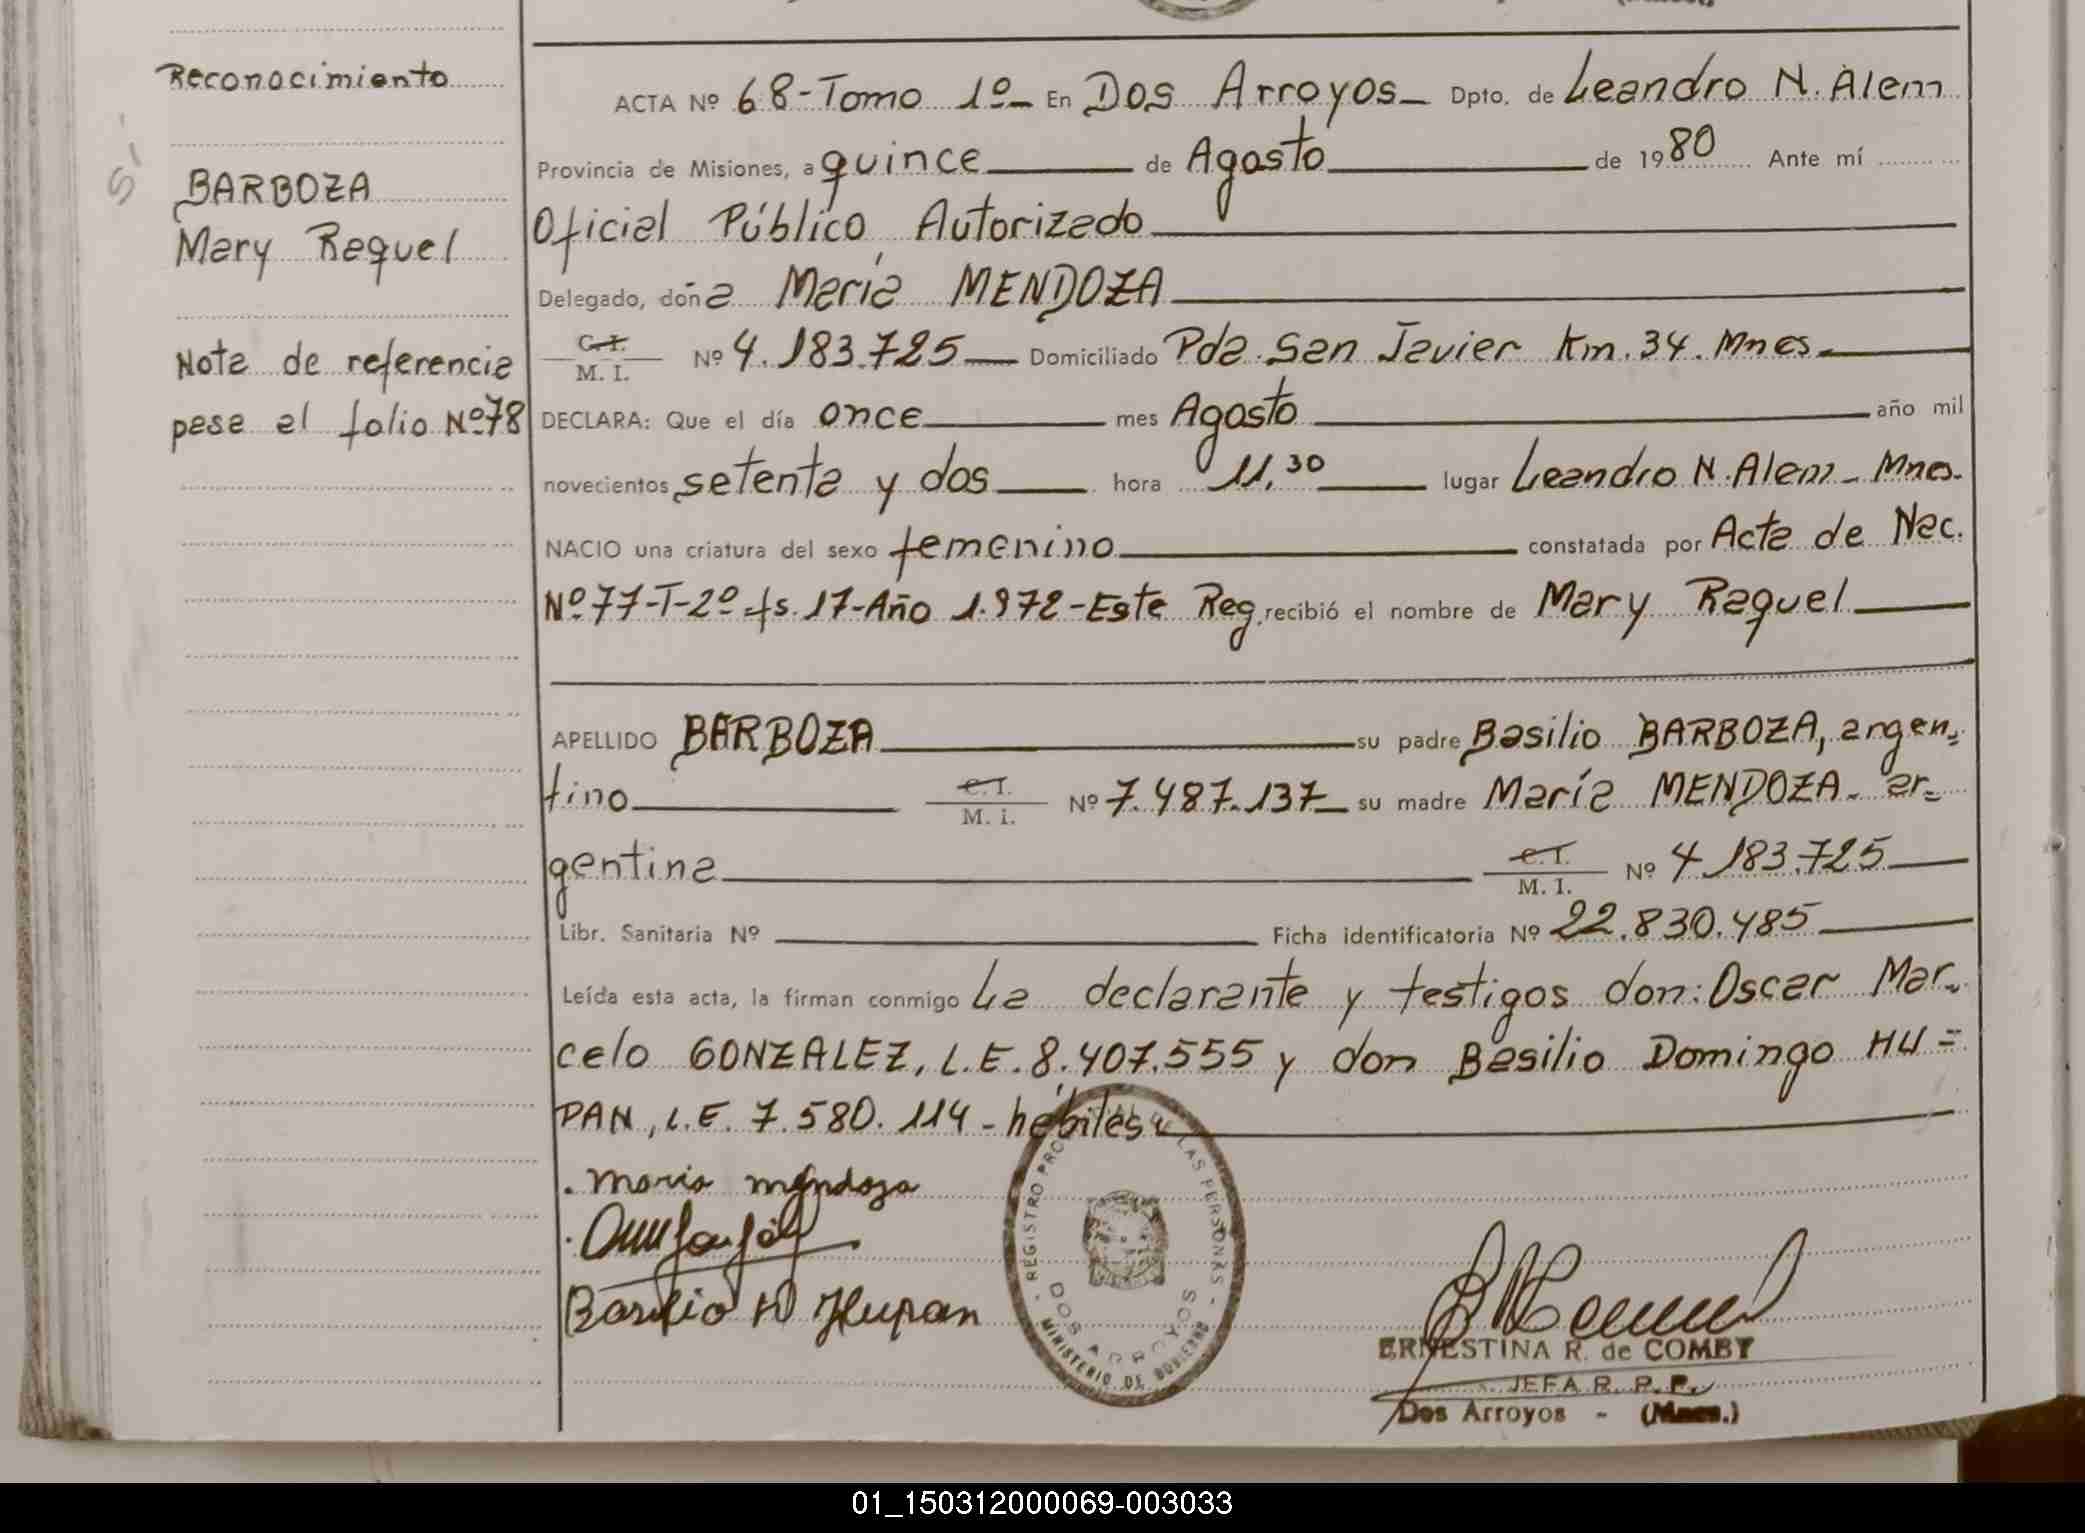 Reconocimiento
BARBOZA
Mary Raquel
Nota de referencia
pasa al folio Nº78
ACTA Nº 68-Tomo 1º- En Dos Arroyos- Dpto. de Leandro N. Alem
Provincia de Misiones, a quince de Agosto de 1980 Ante mí
Oficial Público Autorizado
Delegado, doña María MENDOZA
C.I. M. I. Nº 4.183.725 Domiciliado Pda. San Javier Km. 34. Mnes.
DECLARA: Que el día once mes Agosto año mil
novecientos setenta y dos hora 11,30 lugar Leandro N. Alem - Mnes.
NACIO una criatura del sexo femenino constatada por Acta de Nac.
Nº 77-T-2º-fs. 17-Año 1.972-Este Reg. recibió el nombre de Mary Raquel
APELLIDO BARBOZA su padre Basilio BARBOZA, argen=
tino C.I. M. i. Nº 7.487.137 su madre María MENDOZA- ar=
gentina C.I. M. I. Nº 4.183.725
Libr. Sanitaria Nº Ficha identificatoria Nº 22.830.485
Leída esta acta, la firman conmigo La declarante y testigos don: Oscar Mar=
celo GONZALEZ, L.E. 8.407.555 y don Basilio Domingo HU=
PAN, L.E. 7.580.114 - hábiles
maria mendoza
Basilio D Hupan
REGISTRO PROVINCIAL DE LAS PERSONAS
DOS ARROYOS
MINISTERIO DE GOBIERNO
ERNESTINA R. de COMBY
JEFA R. P. P.
Dos Arroyos - (Mnes.)
01_150312000069-003033